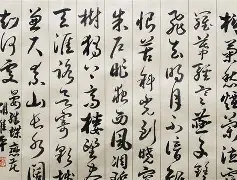 檻菊愁煙蘭泣露
羅幕輕寒燕子雙
飛去明月不諳離
恨苦斜光到曉穿
朱戶昨夜西風凋碧
樹獨上高樓望盡
天涯路欲寄彩箋
兼尺素山長水闊
知何處
晏殊蝶戀花